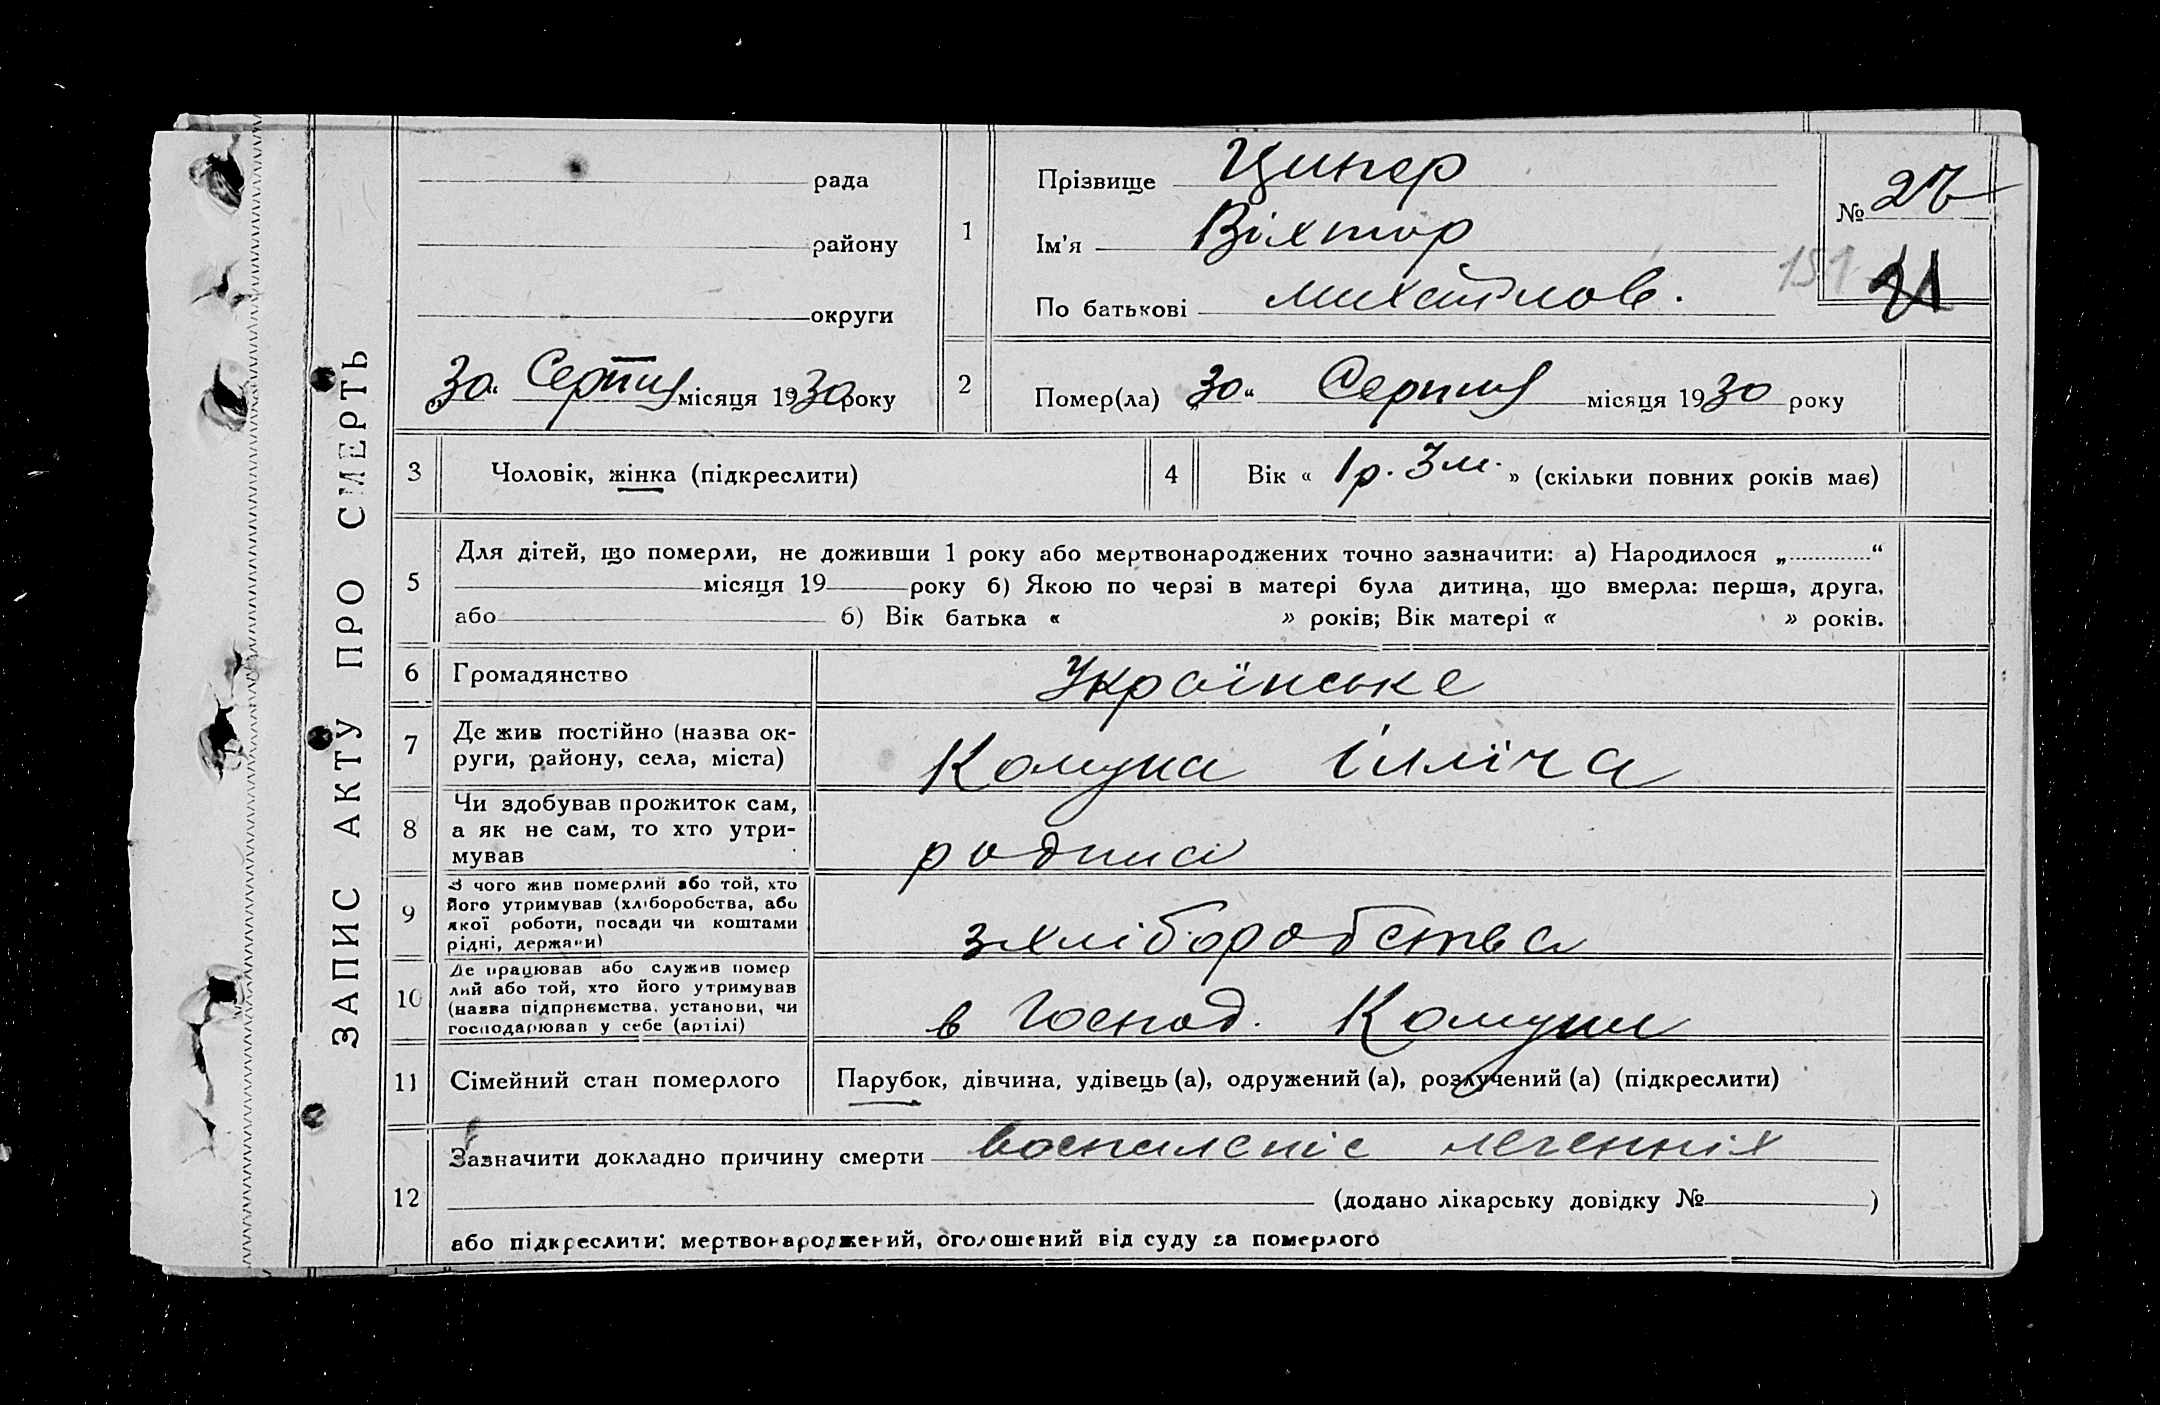 ЗАПИС АКТУ ПРО СМЕРТЬ
рада
району
округи
„30“ Серпня місяця 1930 року
1
Прізвище Ципер
Ім'я Віхтор
По батькові Михайлов.
№ 27
151
21
2
Помер(ла) „30“ Серпня місяця 1930 року
3
Чоловік, жінка (підкреслити)
4
Вік « 1 р. 3 м. » (скільки повних років має)
5
Для дітей, що померли, не доживши 1 року або мертвонароджених точно зазначити: а) Народилося „............“
місяця 19 року б) Якою по черзі в матері була дитина, що вмерла: перша, друга,
або б) Вік батька « » років; Вік матері « » років.
6
Громадянство
Українське
7
Де жив постійно (назва ок-
руги, району, села, міста)
Комуна Ілліча
8
Чи здобував прожиток сам,
а як не сам, то хто утри-
мував
родина
9
З чого жив померлий або той, хто
його утримував (хліборобства, або
якої роботи, посади чи коштами
рідні, держави)
з хліборобства
10
Де працював або служив помер
лий або той, хто його утримував
(назва підприємства, установи, чи
господарював у себе (артілі)
в Господ. Комуни
11
Сімейний стан померлого
Парубок, дівчина, удівець (а), одружений (а), розлучений (а) (підкреслити)
12
Зазначити докладно причину смерти воспаленіє легенніх
(додано лікарську довідку № )
або підкреслити: мертвонароджений, оголошений від суду за померлого